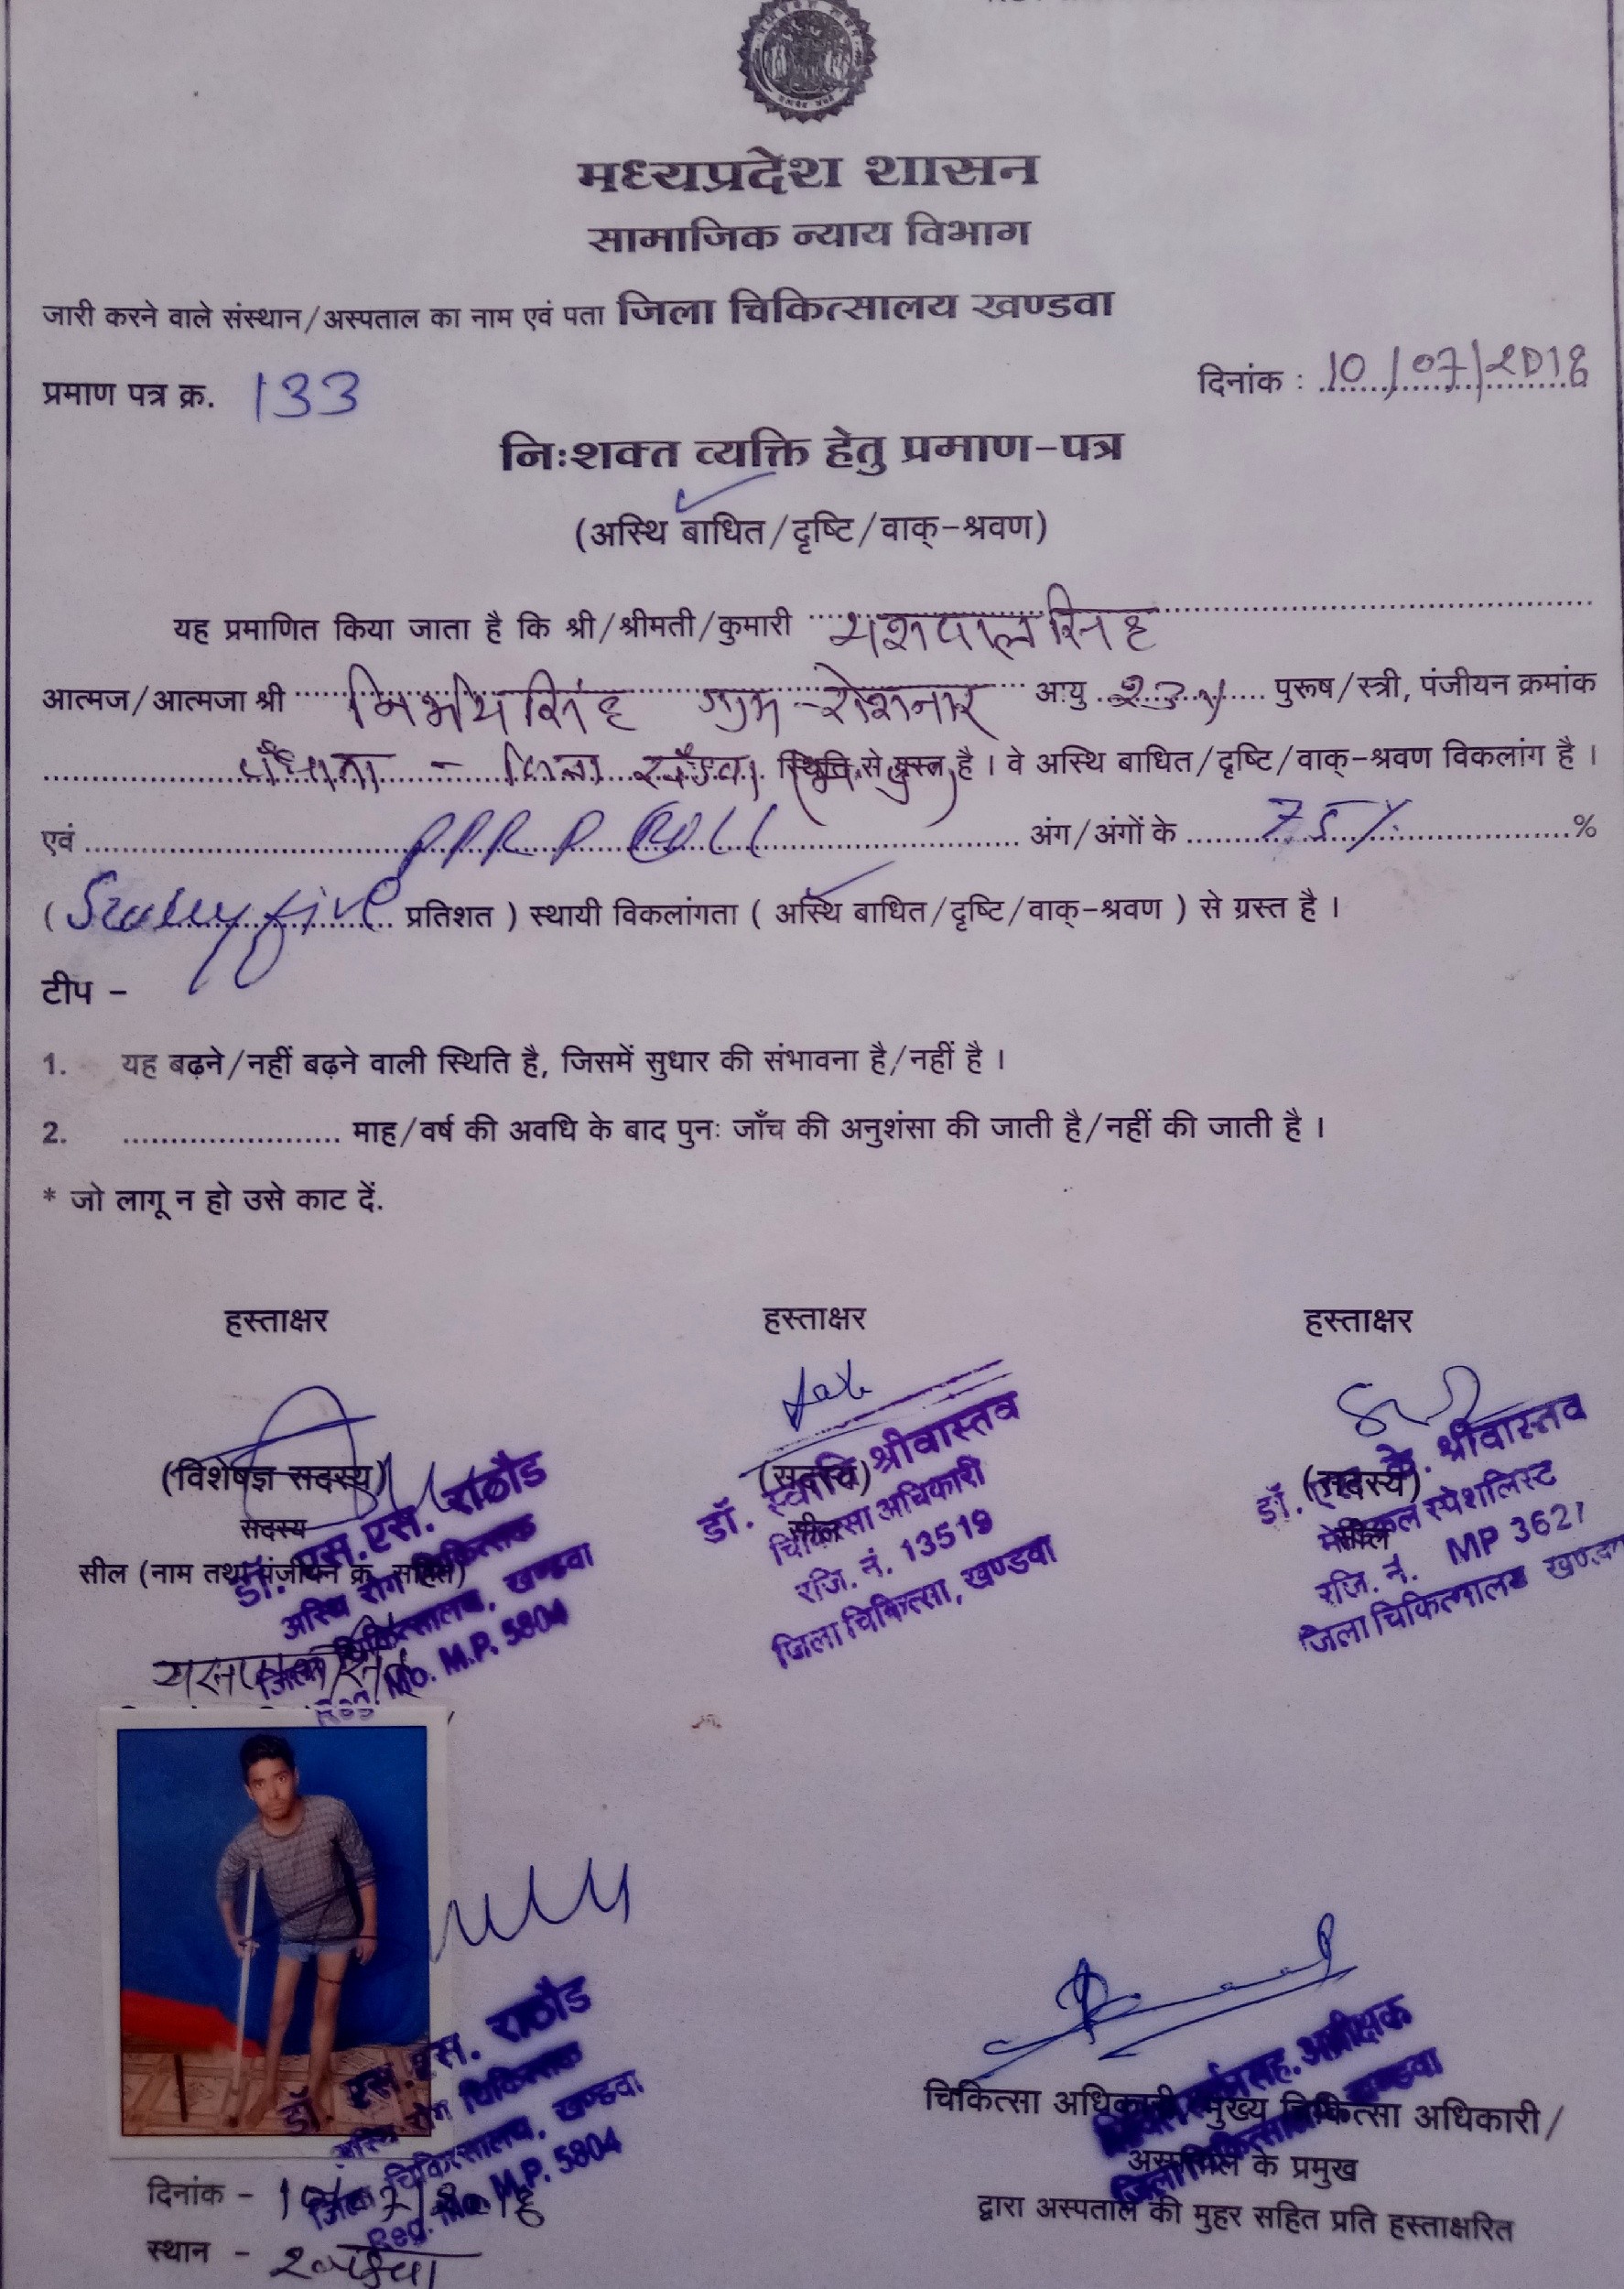 मध्यप्रदेश शासन
सामाजिक न्याय विभाग
जारी करने वाले संस्थान/अस्पताल का नाम एवं पता जिला चिकित्सालय खण्डवा
प्रमाण पत्र क्र. 133
दिनांक : 10/07/2018
निःशक्त व्यक्ति हेतु प्रमाण-पत्र
(अस्थि बाधित/दृष्टि/वाक्-श्रवण)
यह प्रमाणित किया जाता है कि श्री/श्रीमती/कुमारी यशपालसिंह
आत्मज/आत्मजा श्री निर्भयसिंह ग्राम-रोशनार आयु 23y पुरूष/स्त्री, पंजीयन क्रमांक
जिला खंडवा (म.प्र.) स्थिति से ग्रस्त है। वे अस्थि बाधित/दृष्टि/वाक्-श्रवण विकलांग है।
एवं PPRP अंग/अंगों के 75% %
( प्रतिशत ) स्थायी विकलांगता ( अस्थि बाधित/दृष्टि/वाक्-श्रवण ) से ग्रस्त है।
टीप -
1. यह बढ़ने/नहीं बढ़ने वाली स्थिति है, जिसमें सुधार की संभावना है/नहीं है।
2. ...................... माह/वर्ष की अवधि के बाद पुनः जाँच की अनुशंसा की जाती है/नहीं की जाती है।
* जो लागू न हो उसे काट दें.
हस्ताक्षर हस्ताक्षर हस्ताक्षर
(विशेषज्ञ सदस्य) (सदस्य) (सदस्य)
सदस्य सील सील
सील (नाम तथा पंजीयन क्र. सहित)
डॉ. एस.एस. राठौड
अस्थि रोग चिकित्सक
जिला चिकित्सालय, खण्डवा
Reg. No. M.P. 5804
डॉ. स्वाति श्रीवास्तव
चिकित्सा अधिकारी
रजि. नं. 13519
जिला चिकित्सा, खण्डवा
डॉ. के. श्रीवास्तव
मेडिकल स्पेशलिस्ट
रजि. नं. MP 3621
जिला चिकित्सालय खण्डवा
डॉ. एस.एस. राठौड
अस्थि रोग चिकित्सक
जिला चिकित्सालय, खण्डवा
Reg. No. M.P. 5804
चिकित्सा अधिकारी/मुख्य चिकित्सा अधिकारी/
अस्पताल के प्रमुख
द्वारा अस्पताल की मुहर सहित प्रति हस्ताक्षरित
सिविल सर्जन सह. अधीक्षक
जिला चिकित्सालय खण्डवा
दिनांक - 10/07/2018
स्थान - खण्डवा